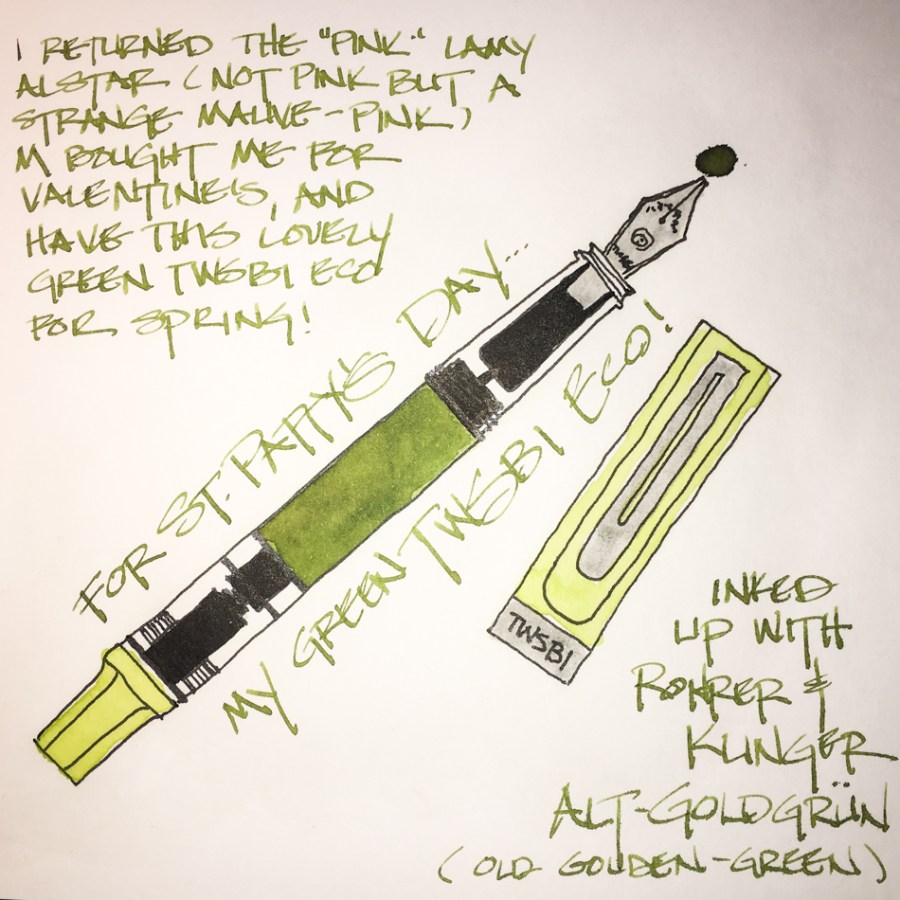 I RETURNED THE "PINK" LAMY
ALSTAR (NOT PINK BUT A
STRANGE MAUVE-PINK)
M BOUGHT ME FOR
VALENTINE'S, AND
HAVE THIS LOVELY
GREEN TWSBI ECO
FOR SPRING!
FOR ST. PATTY'S DAY...
MY GREEN TWSBI ECO!
TWSBI
INKED
UP WITH
ROHRER &
KLINGER
ALT-GOLDGRÜN
(OLD GOLDEN-GREEN)